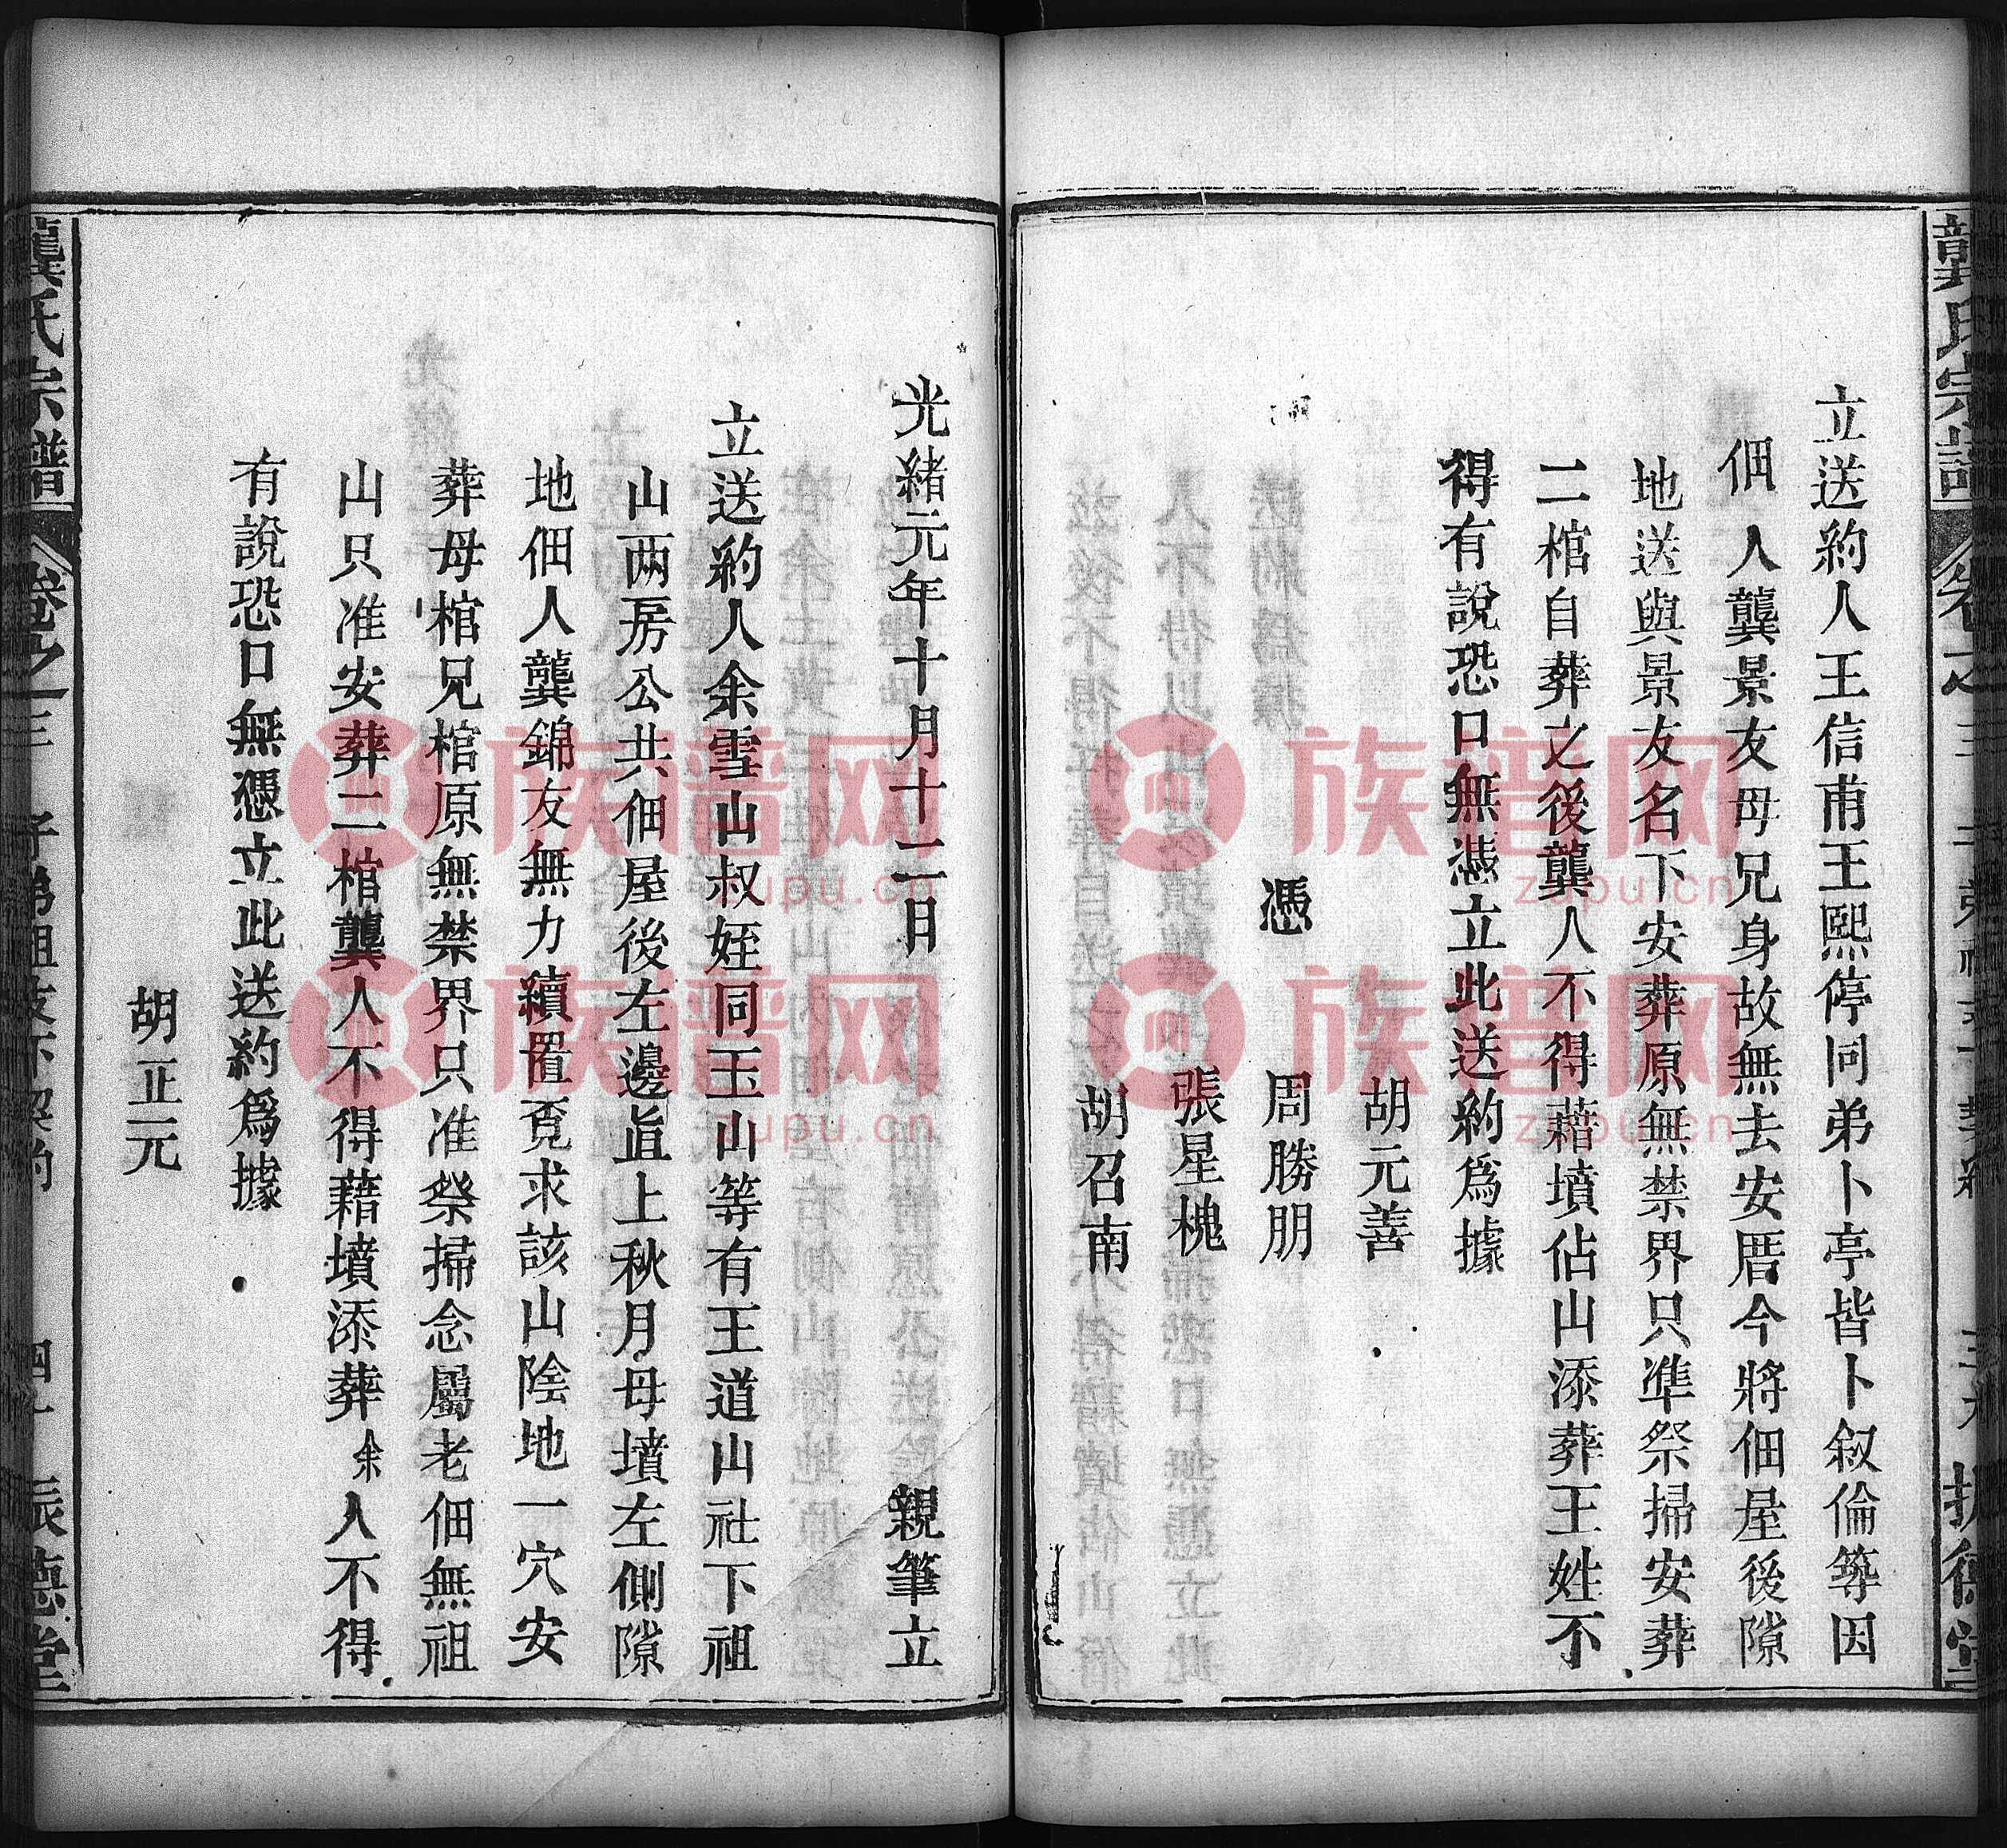 立送約人王信甫王熙停同弟卜亭皆卜叙倫等因
佃人龔景友母兄身故無去安厝今將佃屋後隙
地送與景友名下安葬原無禁界只準祭掃安葬
二棺自葬之後龔人不得藉墳佔山添葬王姓不
得有說恐口無憑立此送約爲據
胡元善
憑 周勝朋
張星槐
胡召南
光緒元年十月十二日 親筆立
立送約人余雪山叔姪同玉山等有王道山社下祖
山兩房公共佃屋後左邊直上秋月母墳左側隙
地佃人龔錦友無力續置覔求該山陰地一穴安
葬母棺兄棺原無禁界只准祭掃念屬老佃無祖
山只准安葬二棺龔人不得藉墳添葬余人不得
有說恐口無憑立此送約爲據
胡正元
龔氏宗譜 卷之三 契約 振德堂
族譜网
zupu.cn
族譜网
zupu.cn
族譜网
zupu.cn
族譜网
zupu.cn